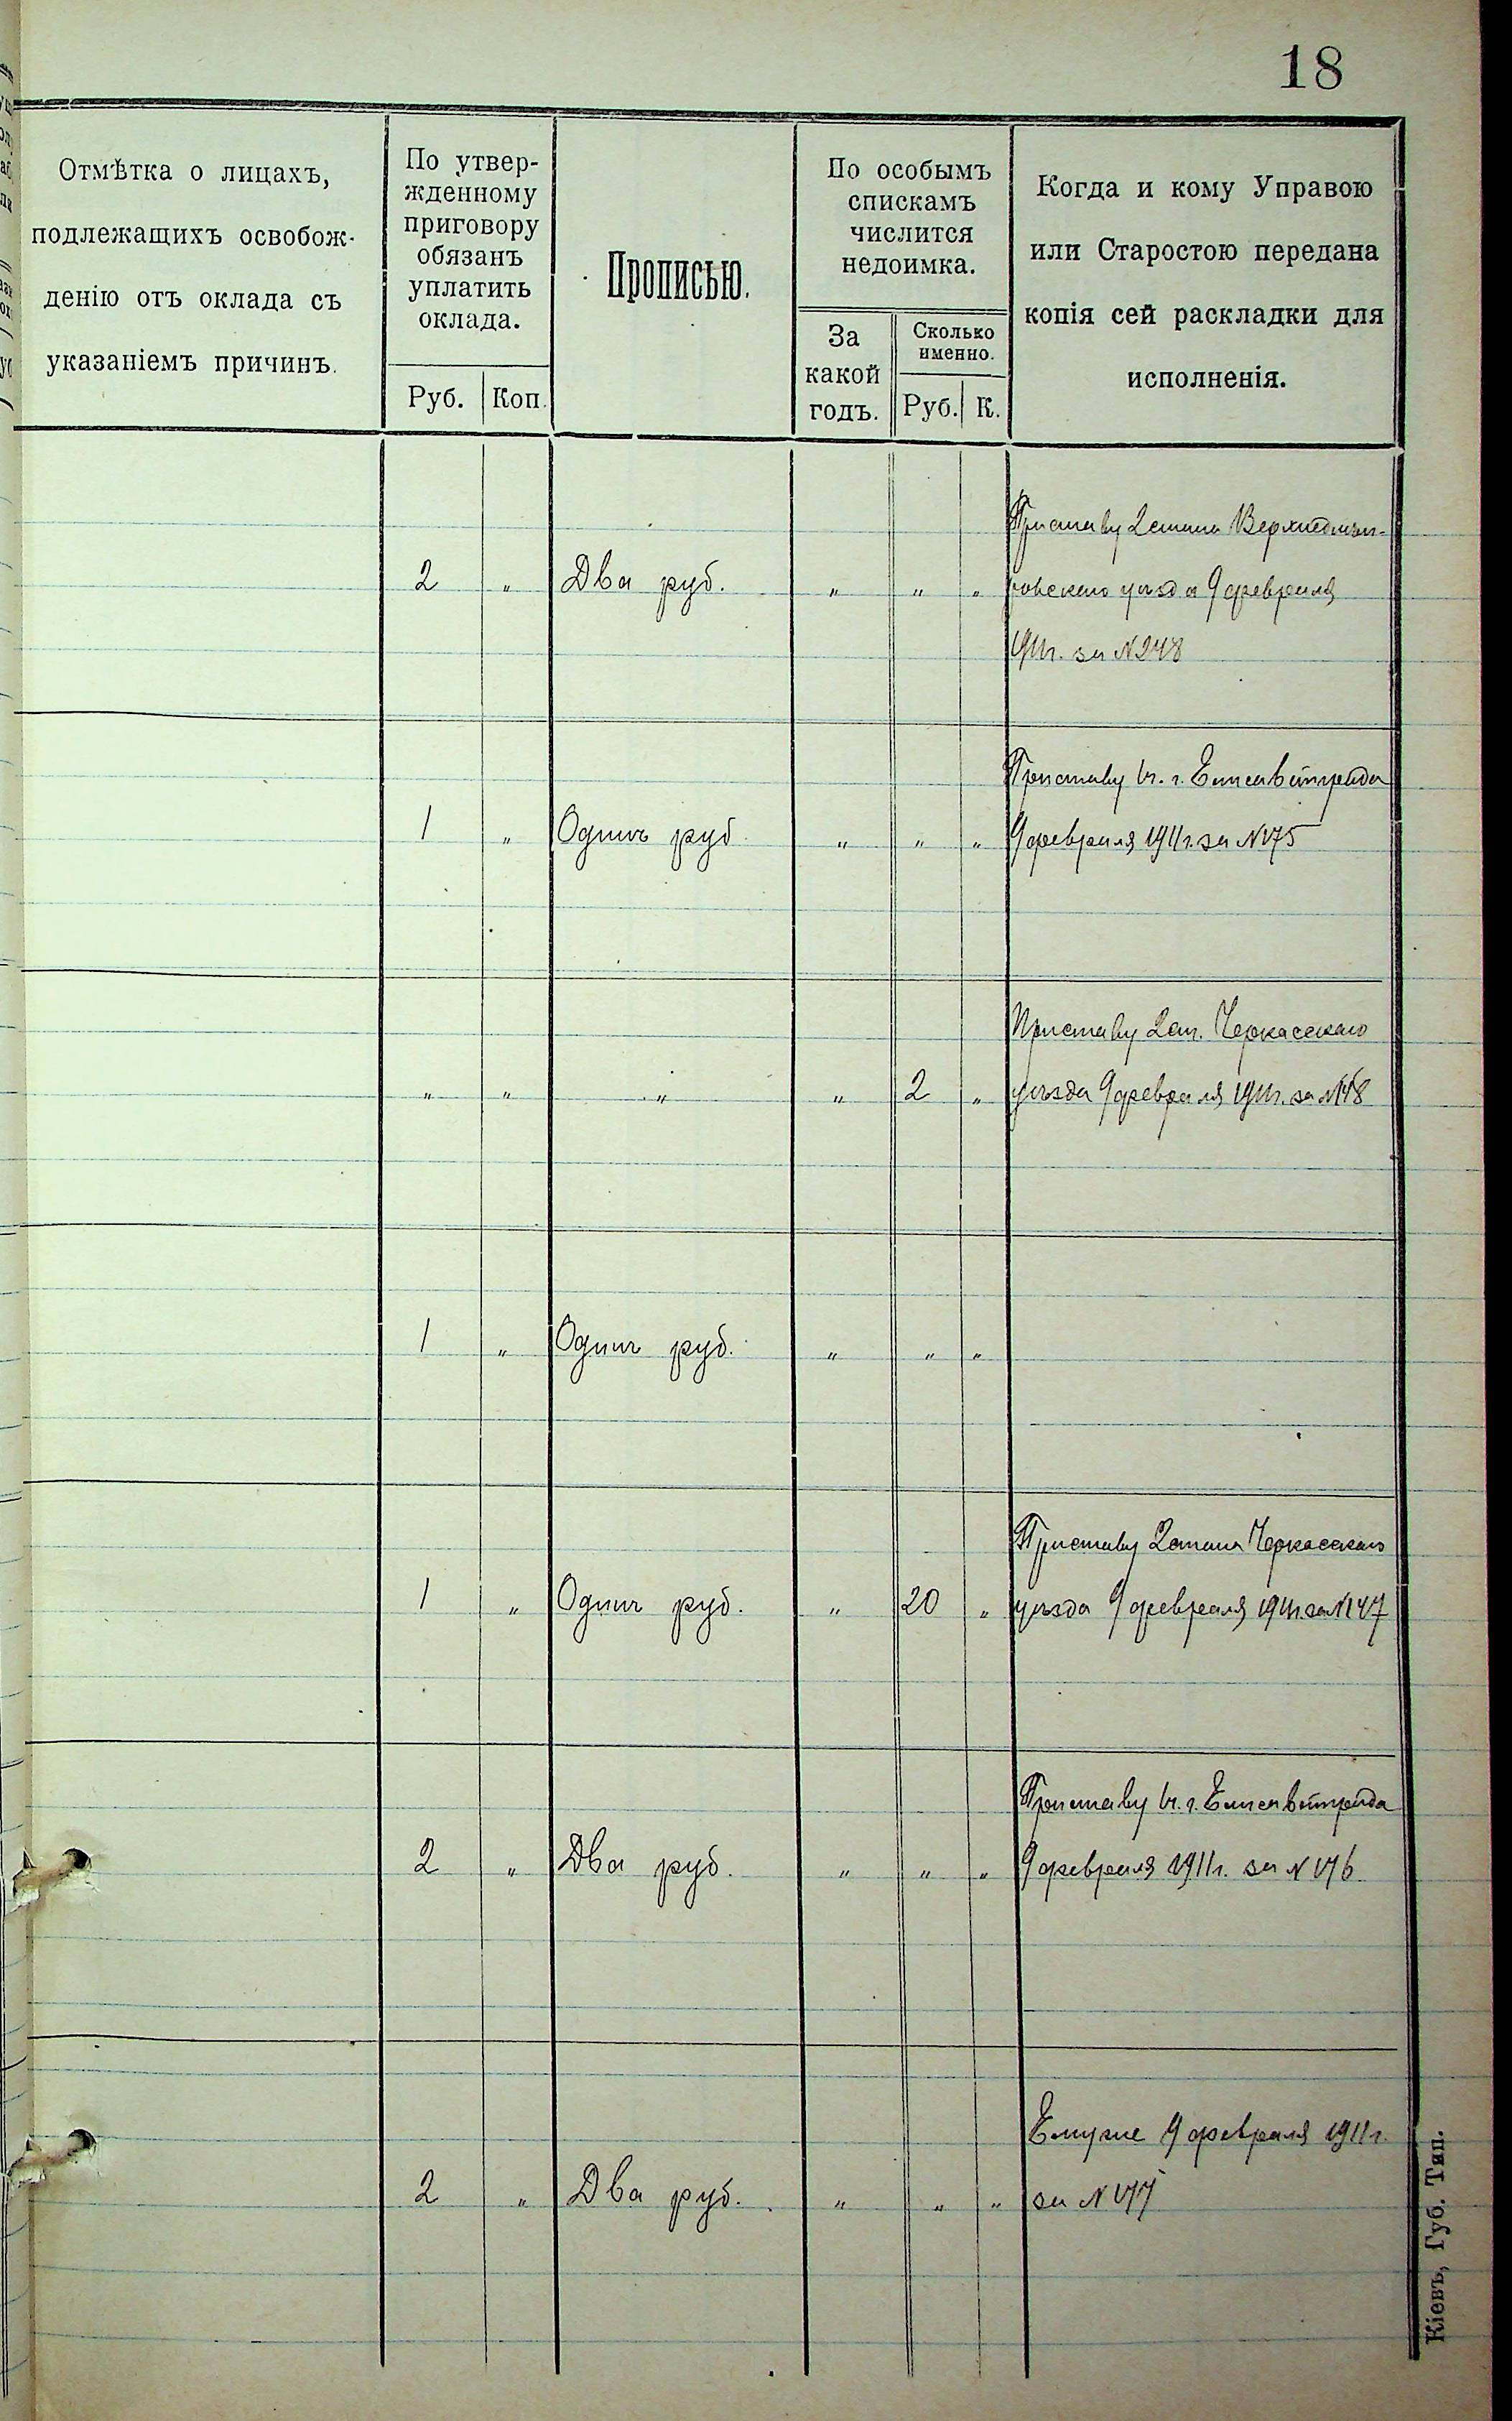 18
Отмѣтка о лицахъ,
подлежащихъ освобож-
денію отъ оклада съ
указаніемъ причинъ.
По утвер-
жденному
приговору
обязанъ
уплатить
оклада.
Руб.
Коп.
Прописью.
По особымъ
спискамъ
числится
недоимка.
За
какой
годъ.
Сколько
именно.
Руб.
К.
Когда и кому Управою
или Старостою передана
копія сей раскладки для
исполненія.
Приставу 2 стана Верхнеднѣп-
2 " Два руб. " " " ровскаго уѣзда 9 февраля
1911г. за N248
Приставу 1ч. г. Елисаветграда
1 " Одинъ руб. " " " 9 февраля 1911г. за N175
Приставу 2 ст. Черкасскаго
" " " " 2 " уѣзда 9 февраля 1911г. за N148
1 " Одинъ руб. " " "
Приставу 2 стана Черкасскаго
1 " Одинъ руб. " 20 " уѣзда 9 февраля 1911г. за N147
Приставу 1ч. г. Елисаветграда
2 " Два руб. " " " 9 февраля 1911г. за N176
Ему же 9 февраля 1911г.
2 " Два руб. " " " за N177
Кіевъ, Губ. Тип.